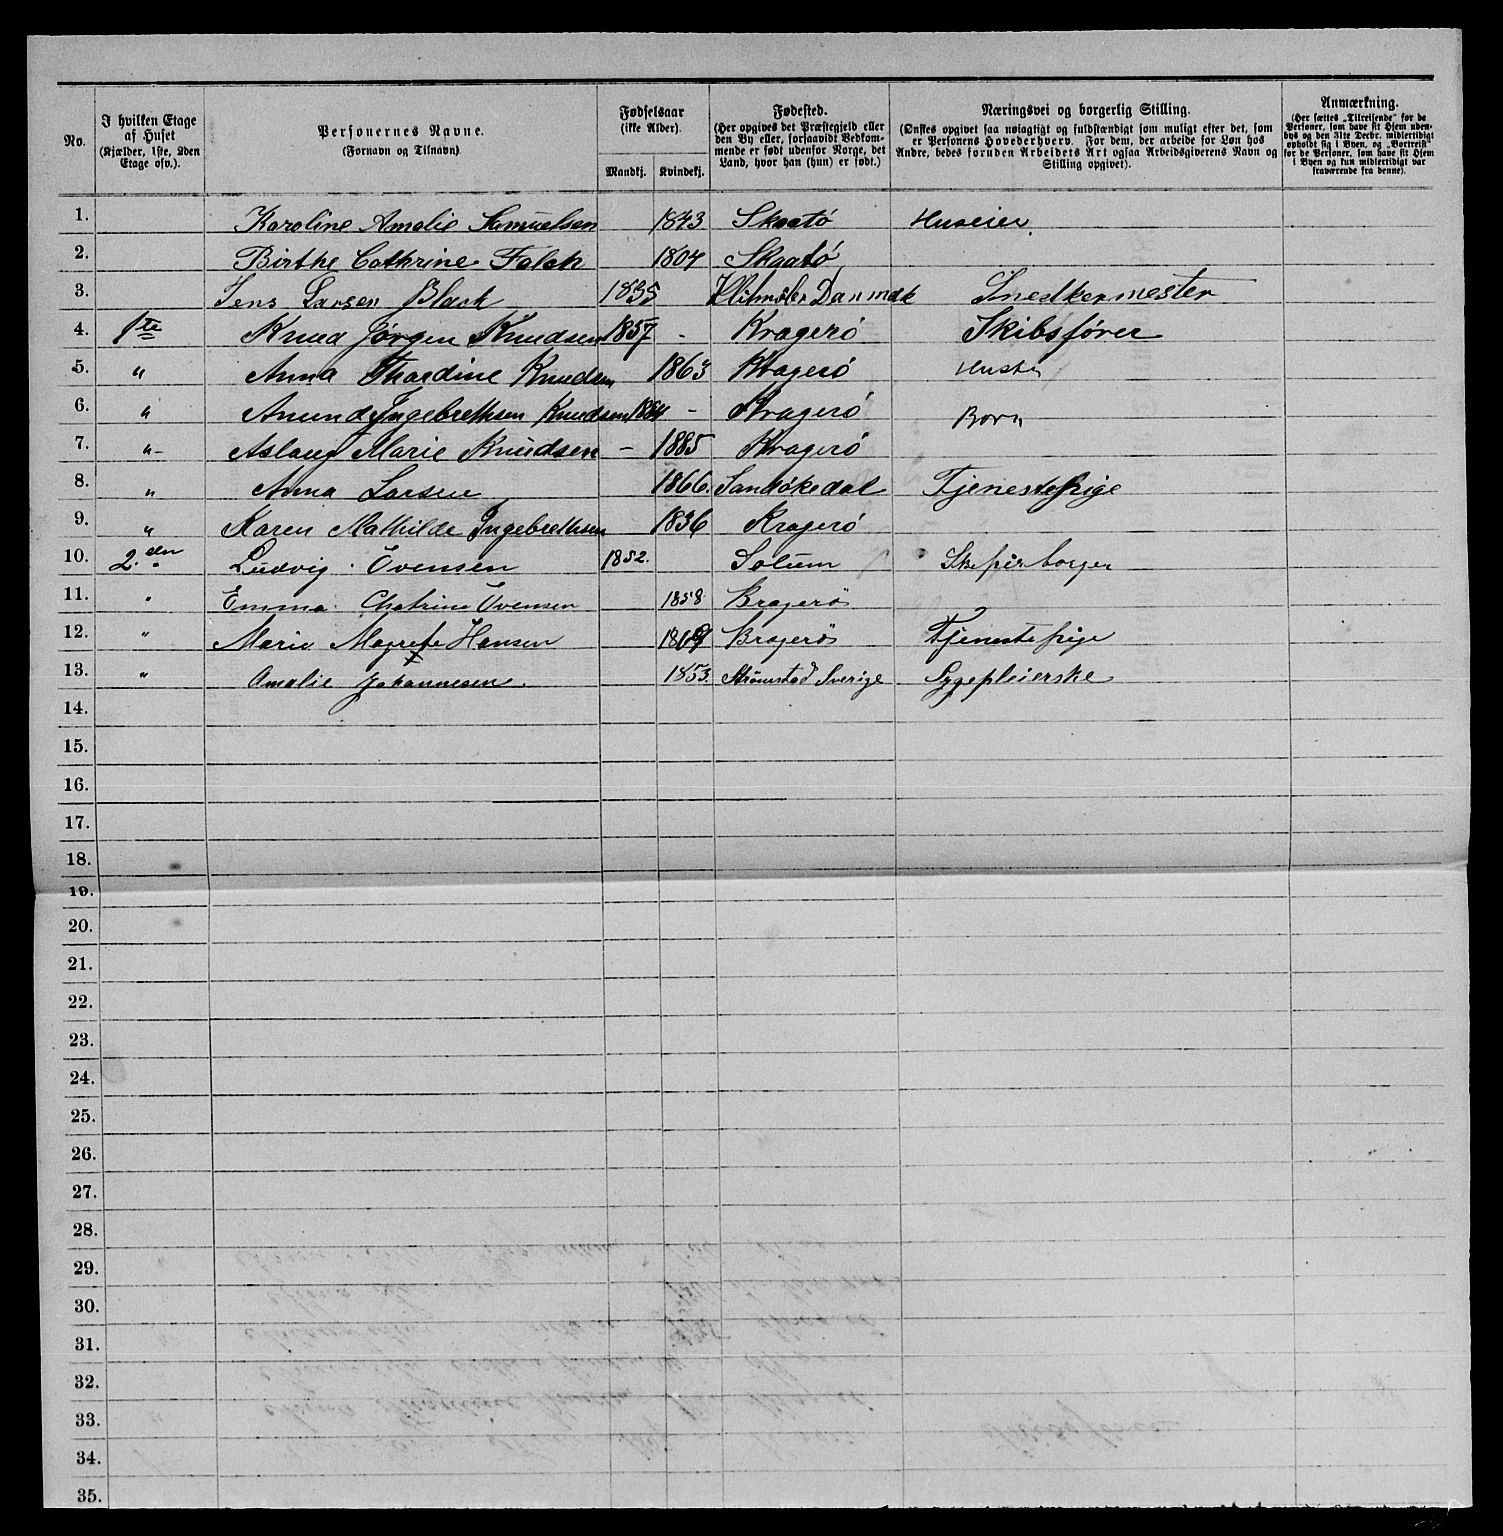 No.
I hvilken Etage af Huset (Kjælder, 1ste, 2den Etage osv.).
Personernes Navne. (Fornavn og Tilnavn)
Fødselsaar (ikke Alder).
Mandkj. Kvindekj.
Fødested. (Her opgives det Præstegjeld eller den By eller, forsaavidt Vedkommende er født udenfor Norge, det Land, hvor han (hun) er født.)
Næringsvei og borgerlig Stilling. (Ønskes opgivet saa nøiagtigt og fuldstændigt som muligt efter det, som er Personens Hovederhverv. For dem, der arbeide for Løn hos Andre, bedes foruden Arbeidets Art ogsaa Arbeidsgiverens Navn og Stilling opgivet).
Anmærkning. (Her sættes „Tilreisende" for de Personer, som have sit Hjem udenbys og den 31te Decbr. midlertidigt opholdt sig i Byen, og „Bortreist" for de Personer, som have sit Hjem i Byen og kun midlertidigt var fraværende fra denne).
1. Karoline Amalie Samuelsen 1843 Skaatö Huseier.
2. Birthe Cathrine Falck 1804 Skaatö
3. Jens Larsen 1835 Danmark Snedkermester
4. 1te Knud Jørgen Knudsen 1857 - Kragerö Skibsfører
5. " Anna Thordine Knudsen 1863 Kragerö Hustru
6. " Amund Ingebrethsen Knudsen 1884 - Kragerö Børn
7. " Aslaug Marie Knudsen - 1885 Kragerö
8. " Anna Larsen 1866. Sandökedal Tjenestepige
9. " Karen Mathilde Ingebrethsen 1836 Kragerö
10. 2.den Ludvig Evensen 1852. Solum
11. " Emma Chatrine Evensen 1858 Kragerö
12. " Marie Magrete Hansen 1869 Kragerö Tjenestepige
13. " Amalie Johannesen. 1853. Strömstad Sverige Sygepleierske
14.
15.
16.
17.
18.
19.
20.
21.
22.
23.
24.
25.
26.
27.
28.
29.
30.
31.
32.
33.
34.
35.